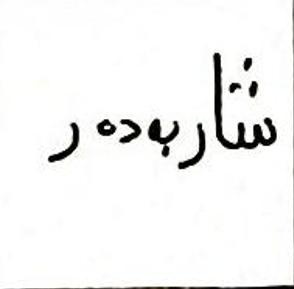 شاربەدەر